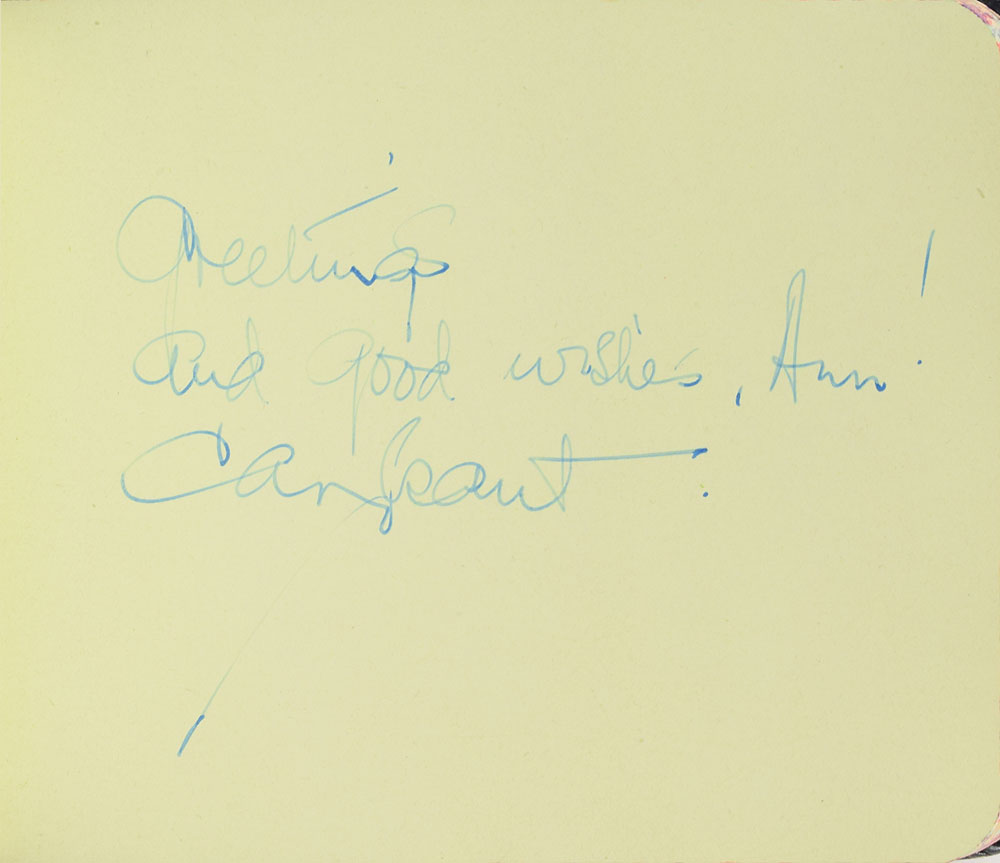 Greetings
and good wishes, Ann!
Cary Grant